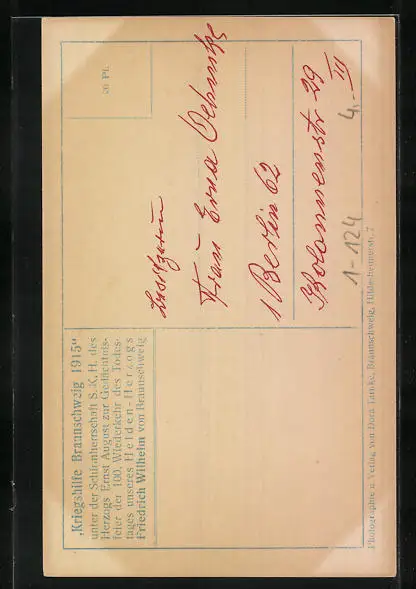 „Kriegshilfe Braunschweig 1915"
unter der Schirmherrschaft S. K. H. des
Herzogs Ernst August zur Gedächtnis-
feier der 100. Wiederkehr des Todes-
tages unseres Helden-Herzogs
Friedrich Wilhelm von Braunschweig
20 Pf.
Besitzerin
Frau Erna
1 Berlin 62
Kolonnenstr 29
4. III
1-124
Photographie u. Verlag von Dora Tatnke, Braunschweig, Hildesheimerstr. 7